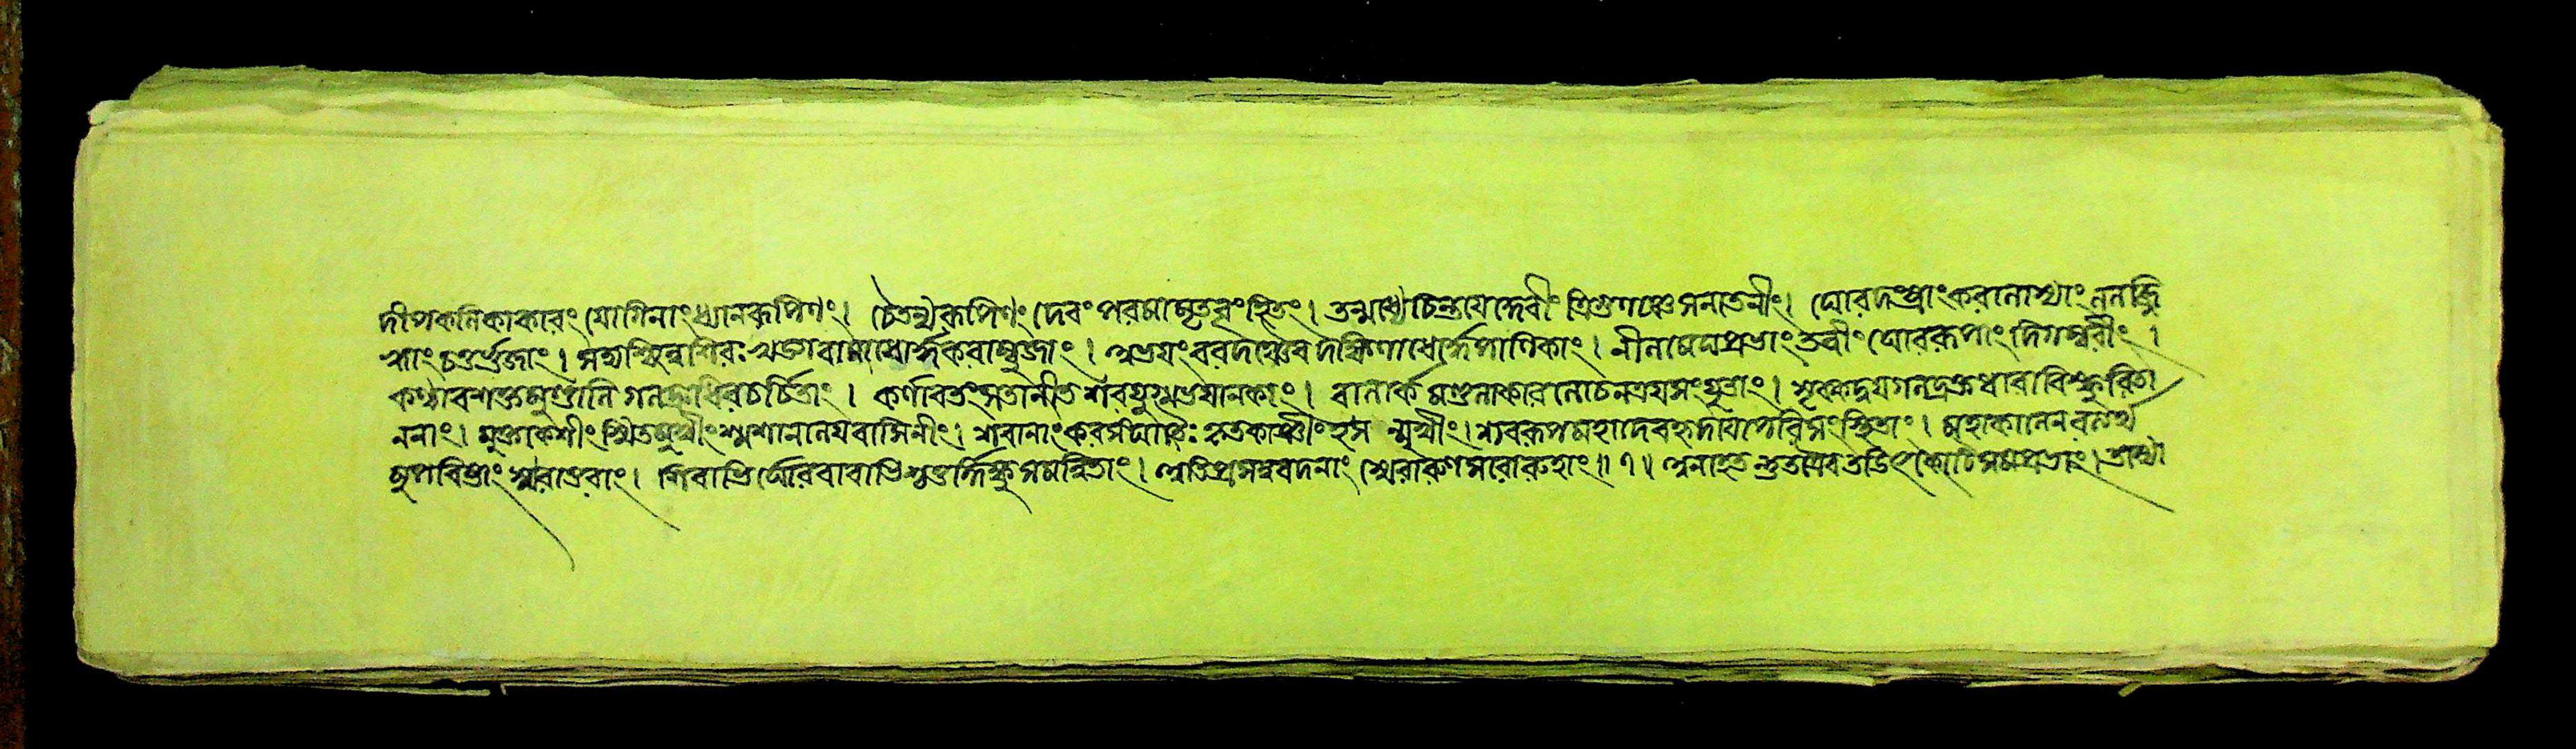 দীপকলিকাকারং যোগিনাং ধ্যানরূপিণং। চৈতন্যরূপিণং দেবং পরমামৃত স্থিতং। তন্মধ্যে চিন্তয়েদ্দেবীং ত্রিগুণাঞ্চ সনাতনীং। ঘোরদংষ্ট্রাং করালাস্যাং ললজ্জি
হ্বাং চতুর্ভুজাং। সদ্যশ্ছিন্নশিরঃখড়্গবামাধোর্দ্ধকরাম্বুজাং। অভয়ং বরদঞ্চৈব দক্ষিণাধোর্দ্ধপাণিকাং। নীলমেঘপ্রভাং তন্বীং ঘোররূপাং দিগম্বরীং।
কণ্ঠাবশক্তমুণ্ডালি গলদ্রুধিরচর্চিতাং। কর্ণাবতংসতানীত শবযুগ্মভয়ানকাং। বালার্কমণ্ডলাকারলোচনত্রয়সংযুতাং। সৃক্কদ্বয়গলদ্রক্তধারাবিস্ফুরিতা
ননাং। মুক্তকেশীং স্মিতমুখীং শ্মশানালয়বাসিনীং। শবানাং করসংঘাতৈঃ কৃতকাঞ্চীং হসন্মুখীং। শবরূপমহাদেবহৃদয়োপরিসংস্থিতাং। মহাকালেন
স্মরাতুরাং। শিবাভির্ঘোররাবাভিশ্চতুর্দিক্ষু সমন্বিতাং। অতিপ্রসন্নবদনাং স্মেরাননসরোরুহাং॥ ৭॥ অনাহত তডিৎকোটিসমপ্রভাং।